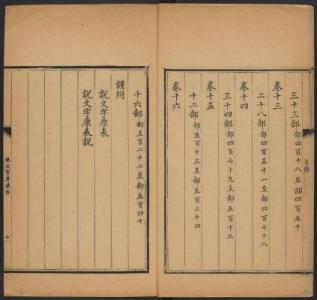 三十三部部四百十八至部四百五十
卷十三
二十八部部四百五十一至部四百七十八
卷十四
三十四部部四百七十九至部五百十二
卷十五
十二部部五百十三至部五百二十四
卷十六
目錄
十六部部五百二十五至部五百四十
謹附
說文字原表
說文字原表說
說文字原集註